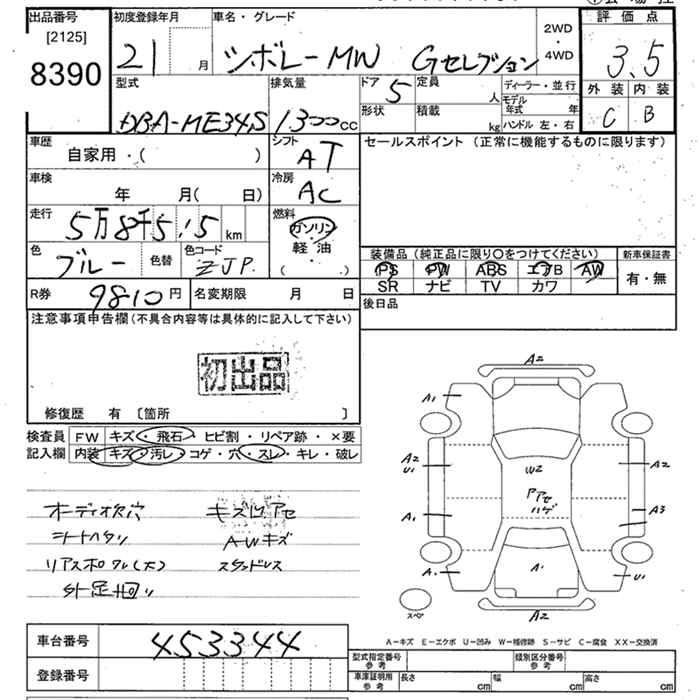 出品番号 初度登録年月 車名・グレード 評価点
[2125]
8390 21 月 シボレーMW Gセレクション 2WD・4WD 3.5
外装 内装
C B
型式 排気量 ドア 定員 ディーラー・並行
DBA-ME34S 1300cc 5 人 モデル年式 年
形状 積載 kg ハンドル 左・右
車歴 シフト セールスポイント (正常に機能するものに限ります)
自家用・( ) AT
車検 冷房
年 月( 日) AC
走行 燃料
5万8千515km ガソリン
軽油
( )
色 色替 色コード
ブルー ZJP.
装備品 (純正品に限り〇をつけてください) 新車保証書
PS PW ABS エアB AW 有・無
SR ナビ TV カワ
R券 9810円 名変期限 月 日 後日品
注意事項申告欄(不具合内容等は具体的に記入して下さい)
初出品
修復歴 有 [箇所 ]
検査員 FW キズ・飛石・ヒビ割・リペア跡・×要
記入欄 内装 キズ・汚レ・コゲ・穴・スレ・キレ・破レ
オーディオ欠穴 キズ凹アセ
シートハタツ AWキズ
リアスポ スタッドレス
外足回り
A2
A1
A2 U1 W2 A2
Pアセ
ハゲ
A1 A3
A. A1 U1
スペア A2
A-キズ E-エクボ U-凹み W-補修跡 S-サビ C-腐食 XX-交換済
車台番号 453344
登録番号
型式指定番号 参考 類別区分番号 参考
車庫証明用 参考 長さ cm 幅 cm 高さ cm